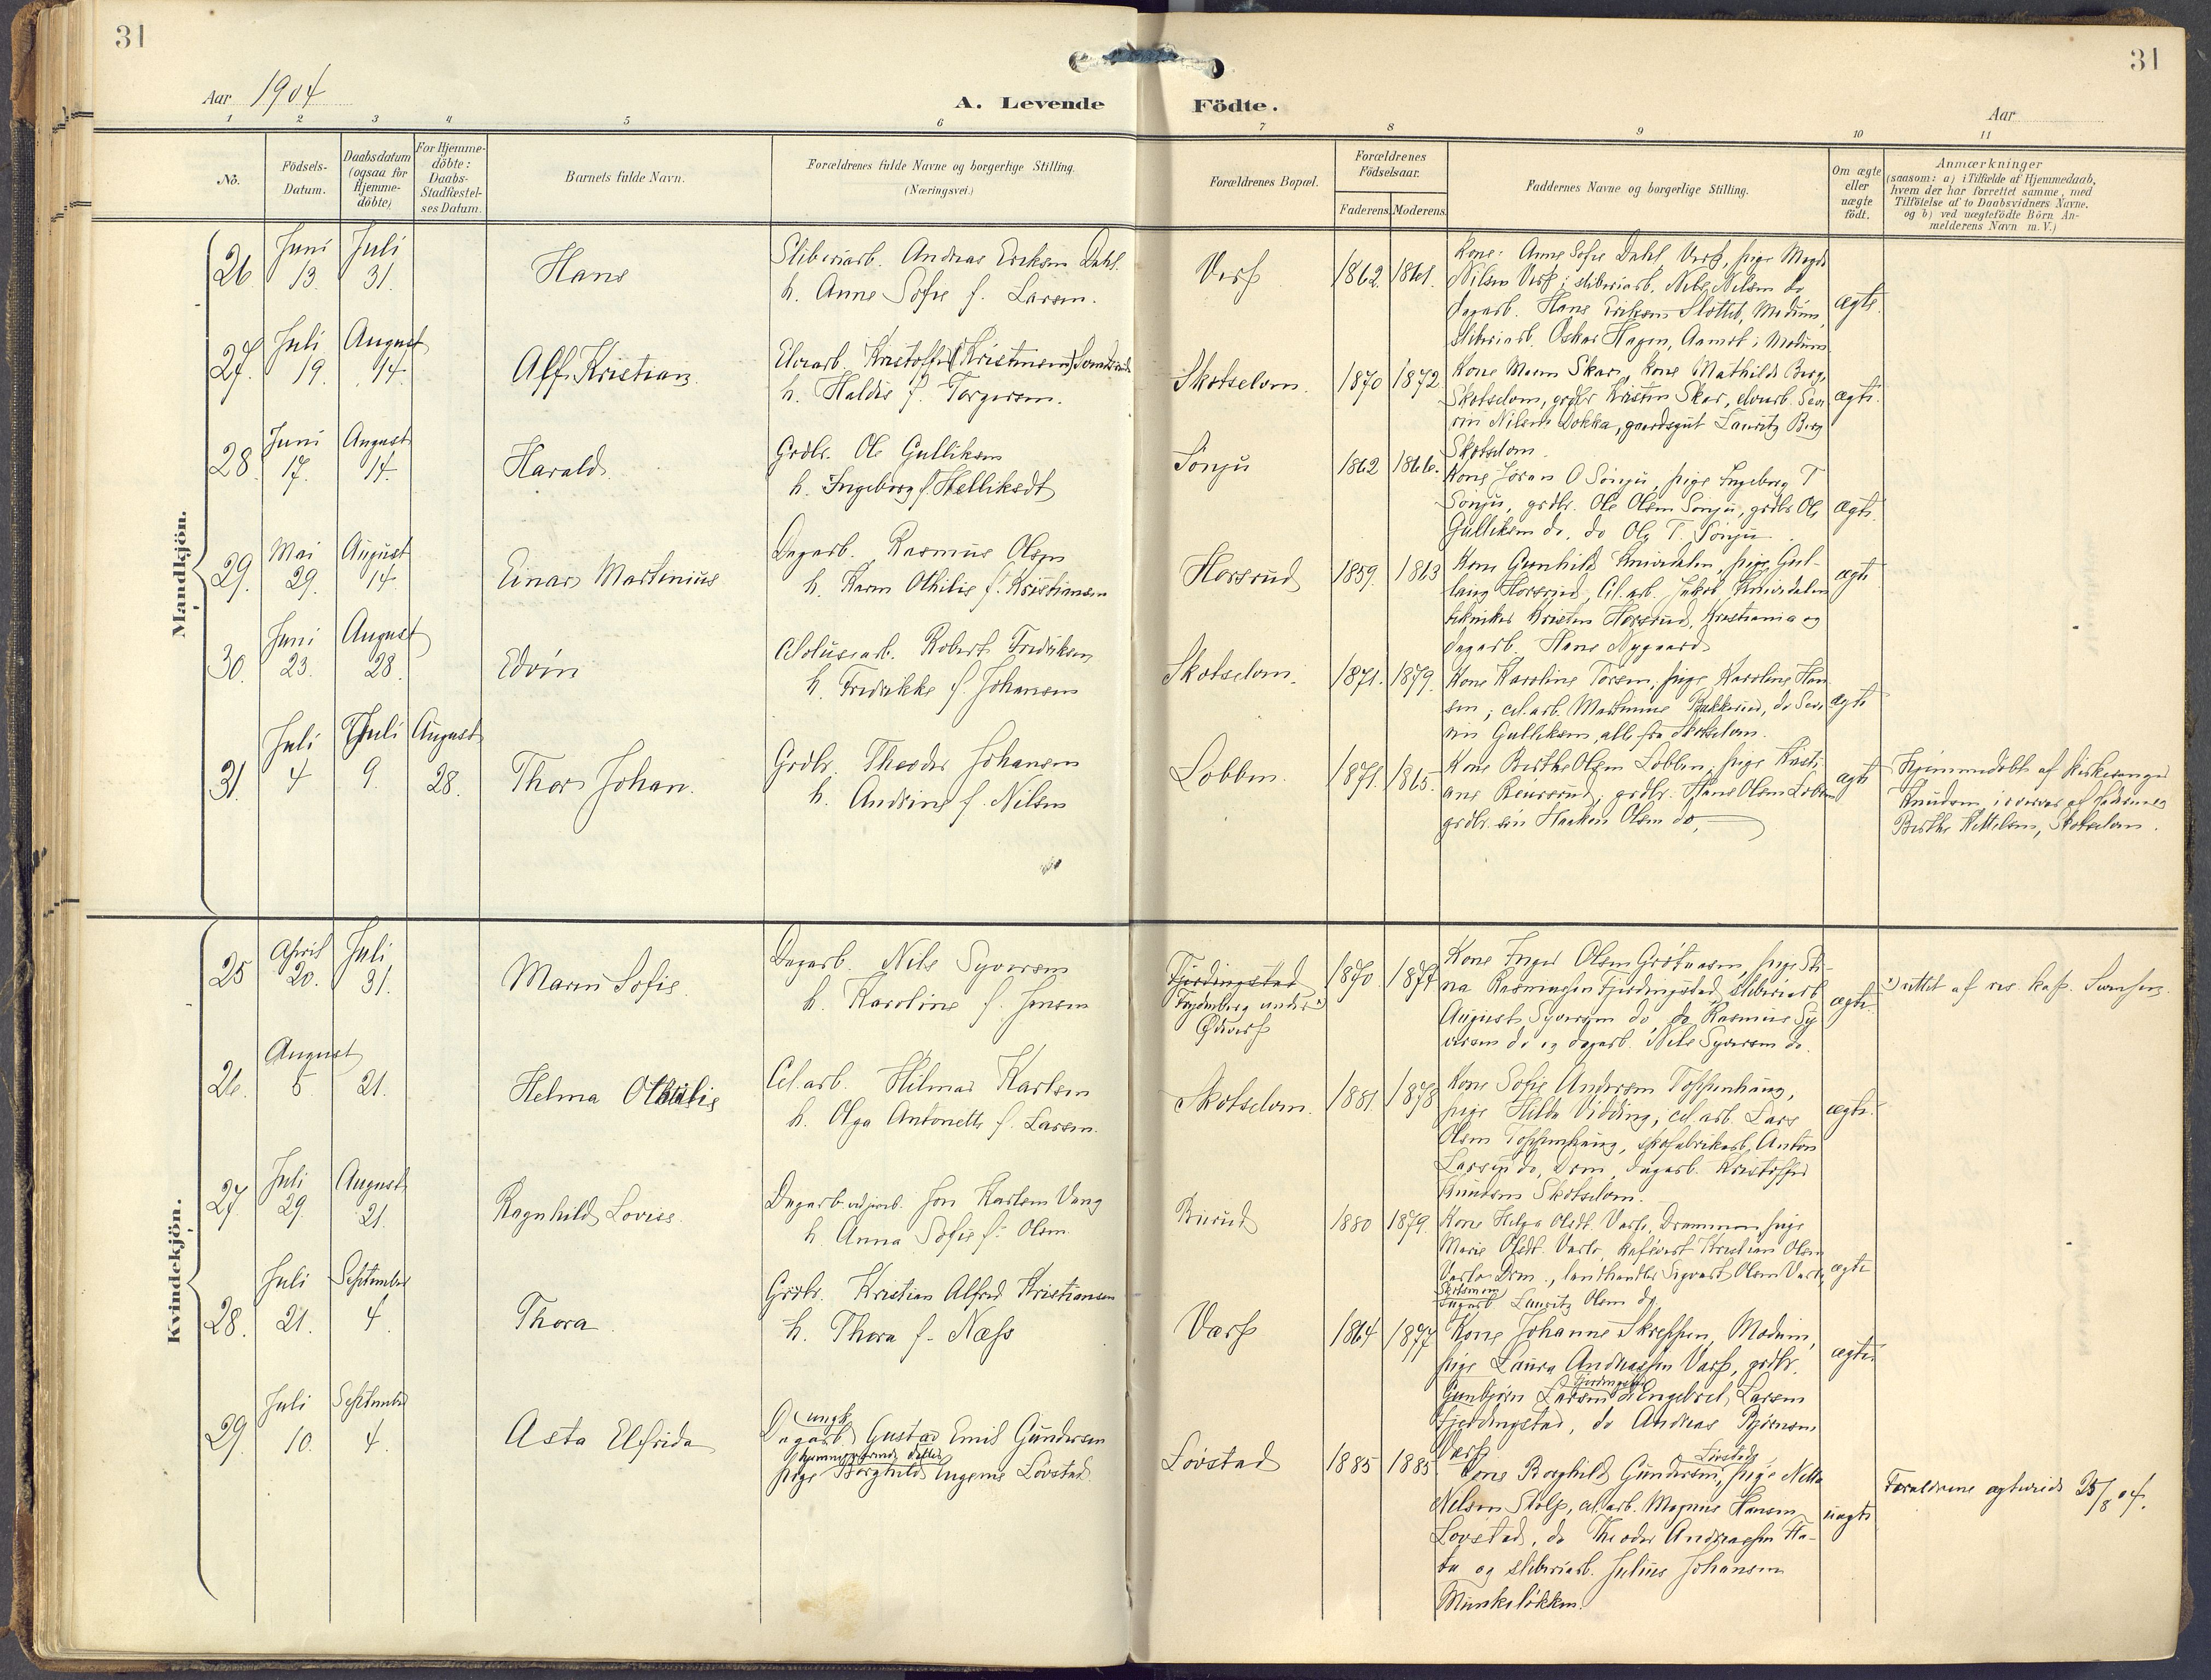 31
31
Aar 1904
A. Levende Födte.
Aar
1 2 3 4 5 6 7 8 9 10 11
No.
Födsels-Datum.
Daabsdatum (ogsaa for Hjemme-döbte)
For Hjemme-döbte: Daabs-Stadfæstel-ses Datum.
Barnets fulde Navn.
Forældrenes fulde Navne og borgerlige Stilling.
(Næringsvei.)
Forældrenes Bopæl.
Forældrenes Födselsaar.
Faderens. Moderens.
Faddernes Navne og borgerlige Stilling.
Om ægte eller uægte födt.
Anmærkninger
(saasom: a) i Tilfælde af Hjemmedaab,
hvem der har forrettet samme, med
Tilföielse af to Daabsvidners Navne,
og b) ved uægtefödte Börn An-
melderens Navn m. V.)
Mandkjön.
26. Juni 13. Juli 31. Hans
Sliberiarb. Andreas Eriksen Dahl.
h. Anne Sofie f. Larsen.
Varp 1862. 1861.
Kone: Anne Sofie Dahl, Varp, pige
Nilsen Varp; sliberiarb. Nils Nilsen do
dagarb. Hans Eriksen Modum,
sliberiarb. Oskar Hagen, Aamot i Modum.
ægte.
27. Juli 19. August 14. Alf Kristian.
h. Haldis f. Torgersen.
Skotselven. 1870 1872
Kone Maren Skar, kone Mathilde Berg,
Skotselven, grdbr Kristen Skar, elvarb. Seve-
rin Nilsen Dokka, gaardsgut Lauritz Berg
Skotselven.
ægte.
28. Juni 17. August 14. Harald.
Grdbr. Ole Gulliksen
h. Ingeborg f. Helliksdt
Sönju 1862 1866.
Kone Joran O Sönju, pige Ingeborg T
Sönju, grdbr. Ole Olsen Sönju, grdbr Ole
Gulliksen do, do Ole T. Sönju.
ægte.
29. Mai 29. August 14. Einar Martinius
Dagarb. Rasmus Olsen
h. Karen Othilie f. Kristiansen
Horsrud 1859. 1863
Kone Gunhild Knivedalen, pige Gul-
laug Horsrud, Cel.arb. Jakob Knivedalen
tekniker Kristen Horsrud, Kristiania og
dagarb. Hans Nygaard
ægte
30. Juni 23. August 28. Edvin
Celolusearb. Robert Fredriksen
h. Fredrikke f. Johansen
Skotselven. 1871. 1879.
Kone Karoline Toresen, pige Karoline Han-
sen; cel.arb. Martinius Bakkerud, do Seve-
rin Gulliksen, alle fra Skotselven.
ægte
31. Juli 4 Juli 9. August 28. Thor Johan.
Grdbr. Theodor Johansen
h. Andrine f. Nilsen
Lobben. 1871. 1865.
Kone Birthe Olsen Lobben; pige Kristi-
ane; grdbr. Hans Olsen Lobben
grdbr. søn Haaken Olsen do,
ægte
Hjemmedöbt af Kirkesanger
Knudsen, i overvær af
Birthe Kittelsen, Skotselven.
Kvindekjön.
25 April 20. Juli 31. Maren Sofie.
Dagarb. Nils Syversen
h. Karoline f. Jensen
Fjerdingstad
under
Ödvarp
1870. 1877
Kone Inger Olsen, pige Sti-
na Rasmussen Fjerdingstad, sliberiarb
August Syversen do, do Rasmus Sy-
versen do og dagarb. Nils Syversen do.
ægte.
rettet af res. kap.
26. August 5 21. Helma Othilie
Cel.arb. Hilmar Karlsen
h. Olga Antonette f. Larsen.
Skotselven. 1881. 1878
Kone Sofie Andersen Toppenhaug,
pige Hilda Vidding; cel.arb. Lars
Olsen Toppenhaug, skofabrikarb. Anton
Larsen do, Drm, dagarb. Kristoffer
Knudsen Skotselven.
ægte.
27 Juli 29. August 21. Ragnhild Lovise.
Dagarb. Jon Karlsen Vang
h Anna Sofie f. Olsen.
Burud 1880 1879.
Kone Helga Olsdt. Varlo, Drammen, pige
Marie Olsdt. Varlo, kafévert Kristian Olsen
Varlo Drm., landhandler Sigvart Olsen Varlo,
Lauritz Olsen do
ægte
28. Juli 21. September 4. Thora.
Grdbr. Kristian Alfred Kristiansen
h. Thora f. Næss
Varp 1864 1877
Kone Johanne Skreppen, Modum,
pige Laura Andreassen Varp, grdbr.
Gunbjørn Larsen do Engebret Larsen
Fjerdingstad, do Andreas Bjørnsen
Varp
ægte
29. Juli 10. September 4. Asta Elfrida
ungk.
Dagarb. Gustav Emil Gundersen
pige Borghild Ingenie Lövstad.
Lövstad 1885 1885
Lövstad
Kone Borghild Gundersen, pige Netta
Nilsen Stolp, cel.arb. Magnus Hansen
Lövstad, do Theodor Andreassen Ha-
ta og sliberiarb. Julius Johansen
Munkeløkken.
uægte
Forældrene ægteviede 25/8 04.